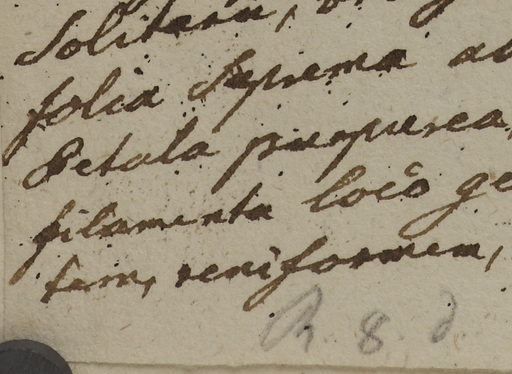 Solitaria,
folia Suprema
Petala purpurea,
filamenta loco
tem, reniformem,
R 8 d